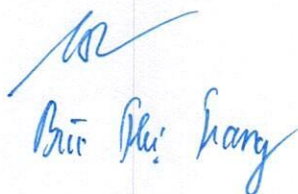 Bùi Thị Giang